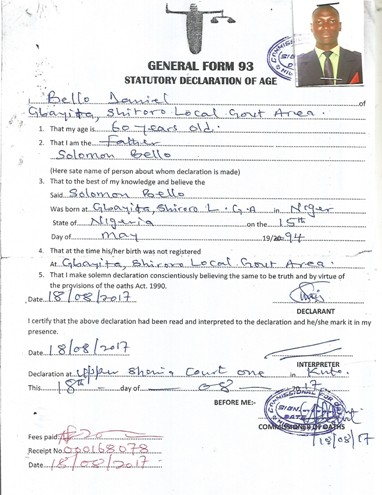 GENERAL FORM 93
STATUTORY DECLARATION OF AGE
I Bello Daniel of
Gbayita, Shiroro Local Govt Area.
1. That my age is 60 years old.
2. That I am the Father
Solomon Bello
(Here sate name of person about whom declaration is made)
3. That to the best of my knowledge and believe the
Said Solomon Bello
Was born at Gbayita, Shiroro L.G.A in Niger
State of Nigeria on the 15th
Day of May 19/20 94
4. That at the time his/her birth was not registered
At Gbayita, Shiroro Local Govt Area.
5. That I make solemn declaration conscientiously believing the same to be truth and by virtue of
the provisions of the oaths Act. 1990.
Date 18/08/2017
DECLARANT
I certify that the above declaration had been read and interpreted to the declaration and he/she mark it in my
presence.
Date 18/08/2017
INTERPRETER
Declaration at Upper Sharia Court one in Kuta
This 18th day of 08 2017
BEFORE ME:-
COMMISSIONER OF OATHS
18/08/17
Fees paid ₦20
Receipt No. 000168078
Date 18/08/2017